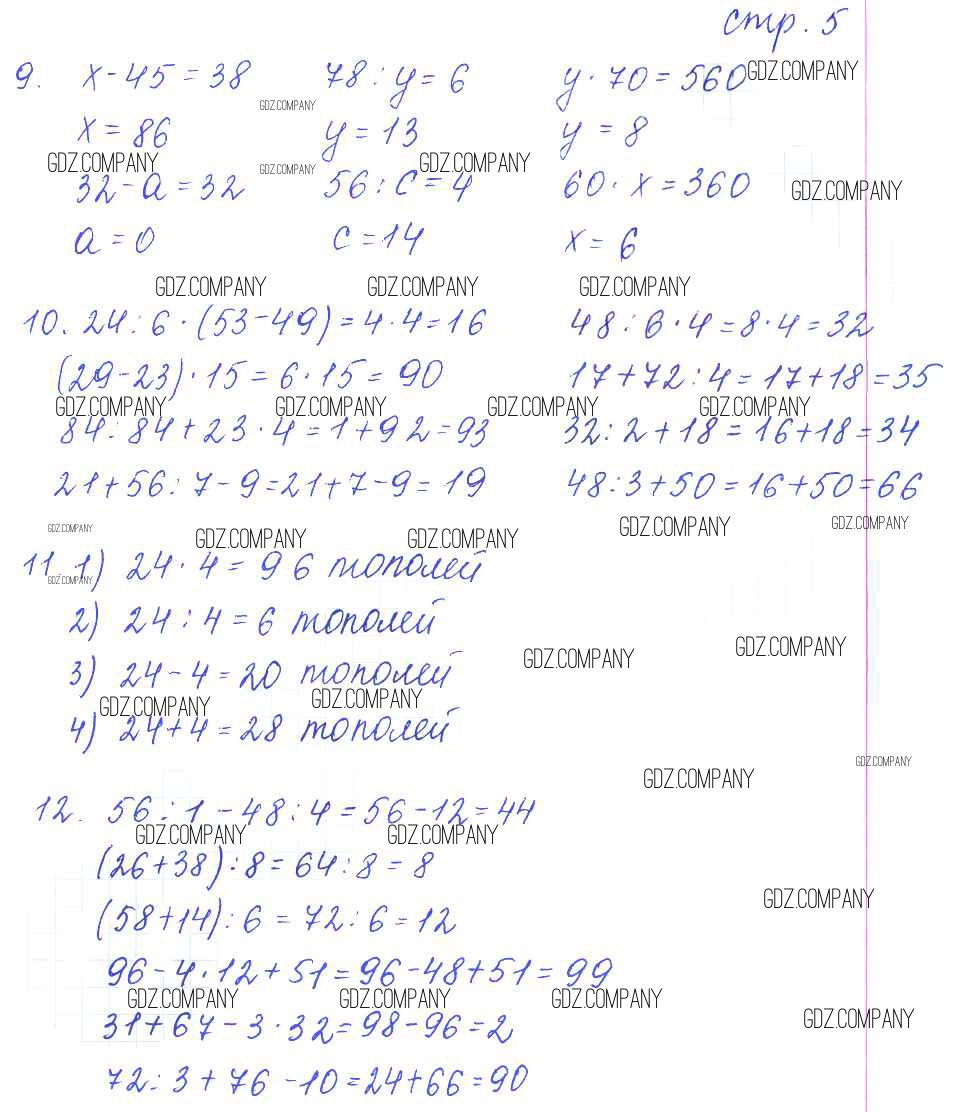 стр. 5
9. x - 45 = 38 78 : y = 6 y · 70 = 560 GDZ.COMPANY
GDZ.COMPANY
x = 86 y = 13 y = 8
GDZ.COMPANY GDZ.COMPANY GDZ.COMPANY
32 - a = 32 56 : c = 4 60 · x = 360 GDZ.COMPANY
a = 0 c = 14 x = 6
GDZ.COMPANY GDZ.COMPANY GDZ.COMPANY
10. 24 : 6 · (53 - 49) = 4 · 4 = 16 48 : 6 · 4 = 8 · 4 = 32
(29 - 23) · 15 = 6 · 15 = 90 17 + 72 : 4 = 17 + 18 = 35
GDZ.COMPANY GDZ.COMPANY GDZ.COMPANY GDZ.COMPANY
84 : 84 + 23 · 4 = 1 + 92 = 93 32 : 2 + 18 = 16 + 18 = 34
21 + 56 : 7 - 9 = 21 + 7 - 9 = 19 48 : 3 + 50 = 16 + 50 = 66
GDZ.COMPANY GDZ.COMPANY GDZ.COMPANY GDZ.COMPANY GDZ.COMPANY
11. 1) 24 · 4 = 96 тополей
GDZ.COMPANY
2) 24 : 4 = 6 тополей
GDZ.COMPANY GDZ.COMPANY
3) 24 - 4 = 20 тополей
GDZ.COMPANY GDZ.COMPANY
4) 24 + 4 = 28 тополей
GDZ.COMPANY GDZ.COMPANY
12. 56 : 1 - 48 : 4 = 56 - 12 = 44
GDZ.COMPANY GDZ.COMPANY
(26 + 38) : 8 = 64 : 8 = 8
GDZ.COMPANY
(58 + 14) : 6 = 72 : 6 = 12
96 - 4 · 12 + 51 = 96 - 48 + 51 = 99
GDZ.COMPANY GDZ.COMPANY GDZ.COMPANY
31 + 67 - 3 · 32 = 98 - 96 = 2 GDZ.COMPANY
72 : 3 + 76 - 10 = 24 + 66 = 90